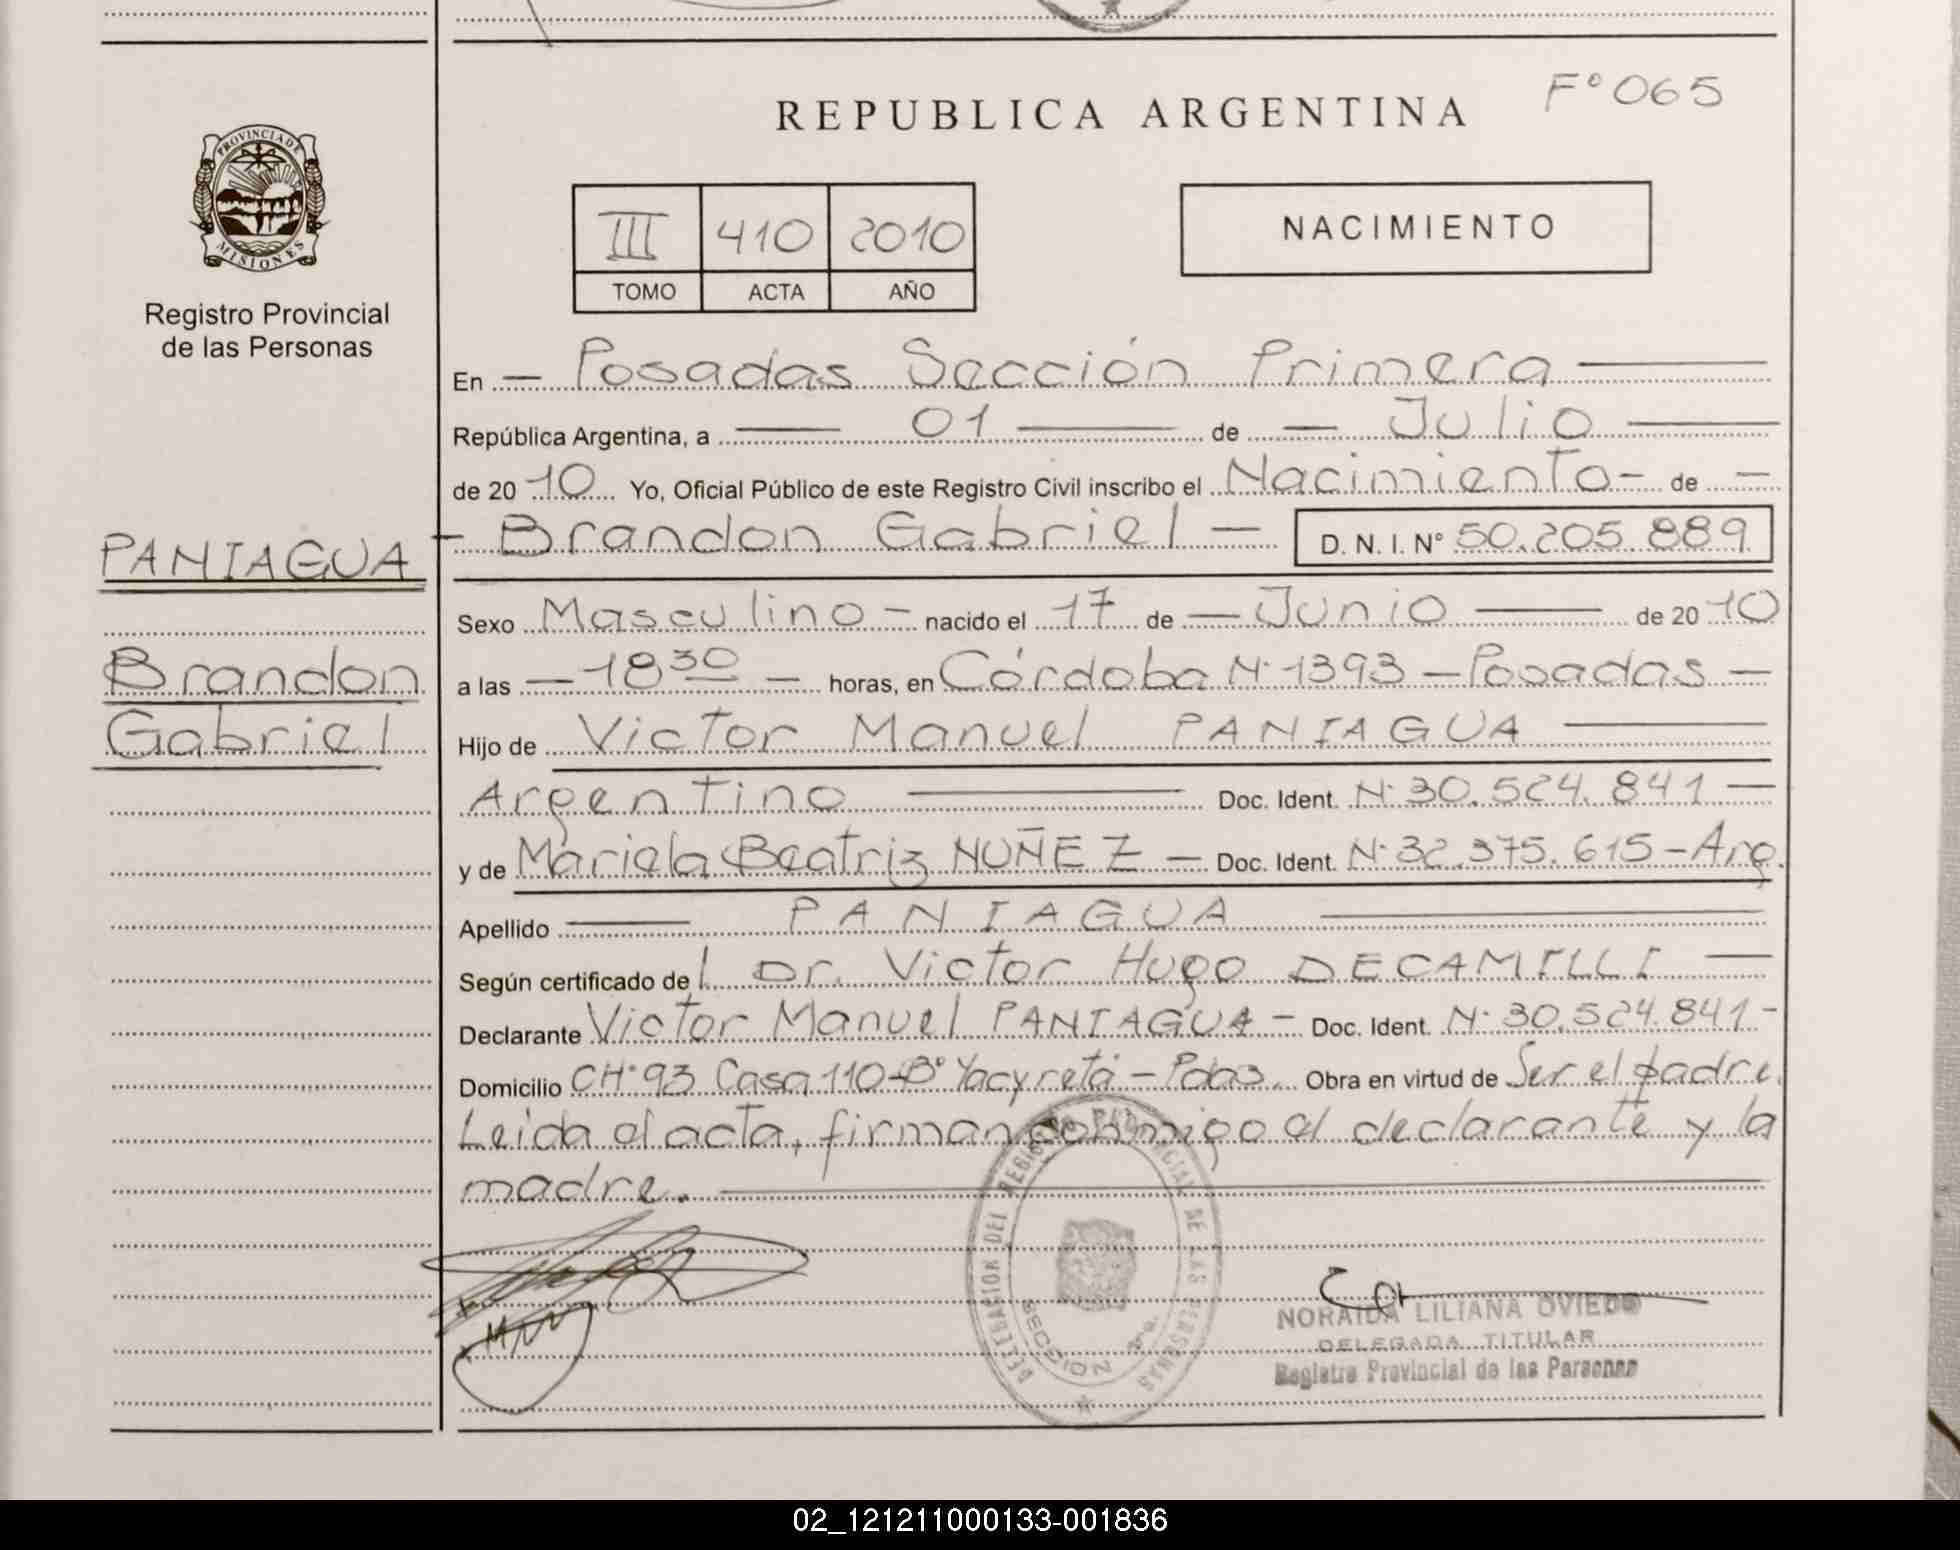 F° 065
REPUBLICA ARGENTINA
PROVINCIA DE
MISIONES
Registro Provincial
de las Personas
III 410 2010
TOMO ACTA AÑO
NACIMIENTO
En — Posadas Sección Primera —
República Argentina, a — 01 — de — Julio —
de 20 10 Yo, Oficial Público de este Registro Civil inscribo el Nacimiento - de —
— Brandon Gabriel — D. N. I. N° 50.205.889
PANIAGUA
Brandon
Gabriel
Sexo Masculino — nacido el 17 de — Junio — de 20 10
a las — 18 30 — horas, en Córdoba N· 1393 — Posadas —
Hijo de Victor Manuel PANIAGUA —
Argentino — Doc. Ident. N· 30.524.841 —
y de Mariela Beatriz NUÑEZ — Doc. Ident. N· 32.375.615 - Arg.
Apellido — PANIAGUA —
Según certificado del Dr. Victor Hugo DECAMILLI —
Declarante Victor Manuel PANIAGUA — Doc. Ident. N· 30.524.841 -
Domicilio CH· 93 Casa 110 - B° Yacyretá - Pdas. Obra en virtud de Ser el padre.
Leida el acta, firman conmigo el declarante y la
madre. —
DELEGACION DEL REGISTRO PROVINCIAL DE LAS PERSONAS
SECCION 1ra.
NORAIDA LILIANA OVIEDO
DELEGADA TITULAR
Registro Provincial de las Personas
02_121211000133-001836